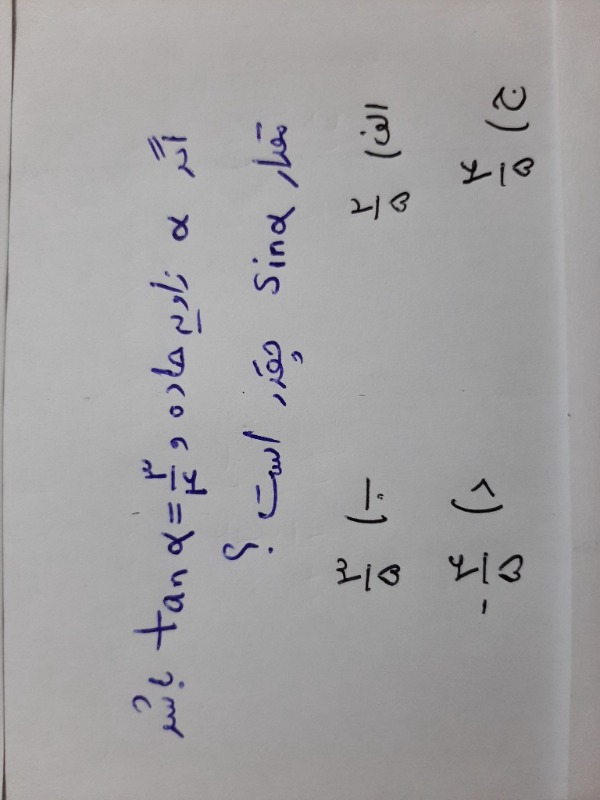 اگر α زاویه حاده و tan α = ۳/۴ باشد
مقدار sin α چقدر است ؟
الف) ۲/۵ ب) ۳/۵
ج) ۴/۵ د) -۴/۵